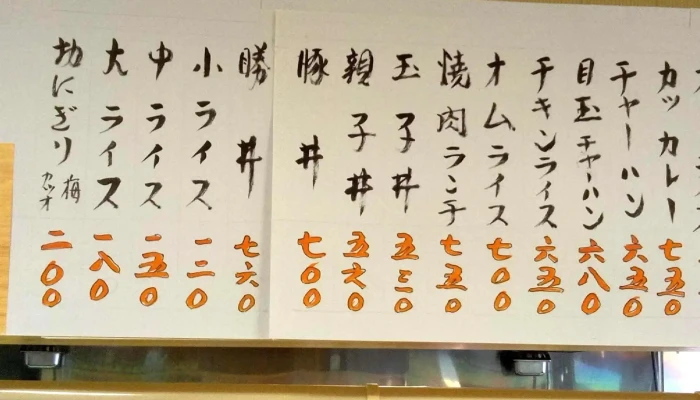 カツカレー 七五〇
チャーハン 六五〇
目玉チャーハン 六八〇
チキンライス 六五〇
オムライス 七〇〇
焼肉ランチ 七五〇
玉子丼 五三〇
親子丼 五九〇
豚丼 七〇〇
勝丼 七六〇
小ライス 一二〇
中ライス 一五〇
大ライス 一八〇
にぎり 梅 カツオ 二〇〇